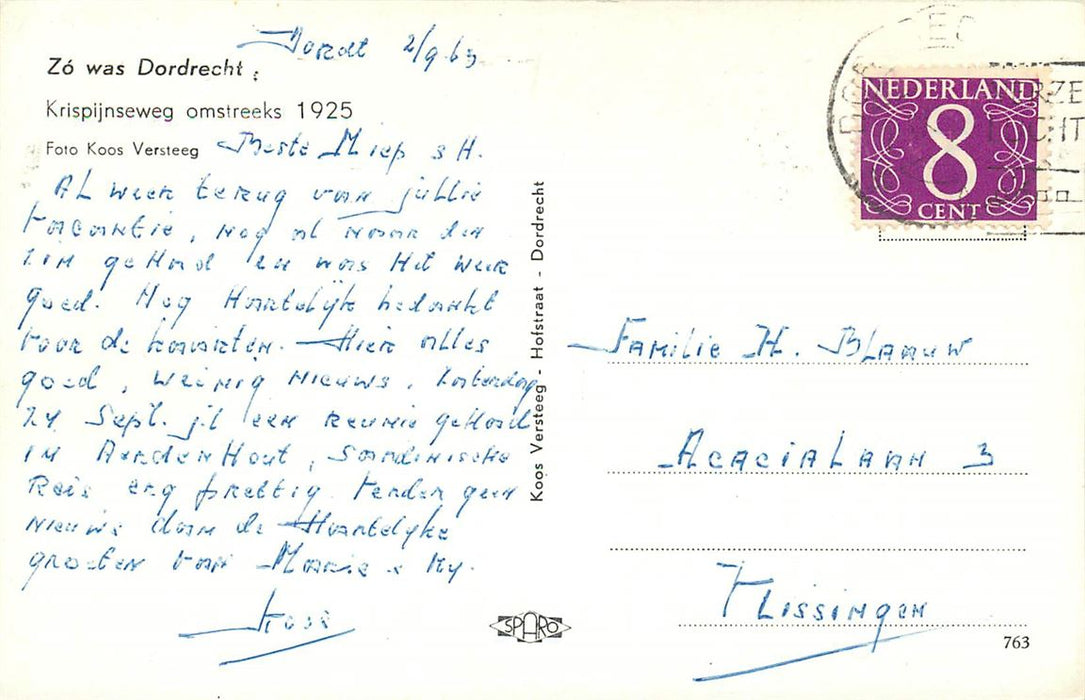 Dordt 2/9 63
Zó was Dordrecht :
Krispijnseweg omstreeks 1925
Foto Koos Versteeg
Beste Miep & H.
Al weer terug van jullie
vacantie, nog al mooi
zin gehad en was het weer
goed. Nog Hartelijk bedankt
voor de kaarten. Hier alles
goed, weinig nieuws. Zaterdag
24 Sept. j.l een reunie gehad
in AerdenHout, Scandinische
Reis erg prettig. Verder geen
nieuws dan de Hartelijke
groeten van Marie & Ny.
Koos
Koos Versteeg - Hofstraat - Dordrecht
SPARO
NEDERLAND
8
CENT
Familie H. Blaauw
Acacialaan 3
Vlissingen
763